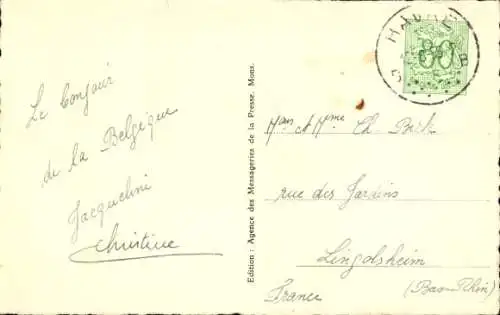 Le bonjour
de la Belgique
Jacqueline
Christine
Edition : Agence des Messageries de la Presse, Mons.
HAVRE
80
B
Mons et Mme Ch.
rue des Jardins
Lingolsheim
(Bas-Rhin)
France